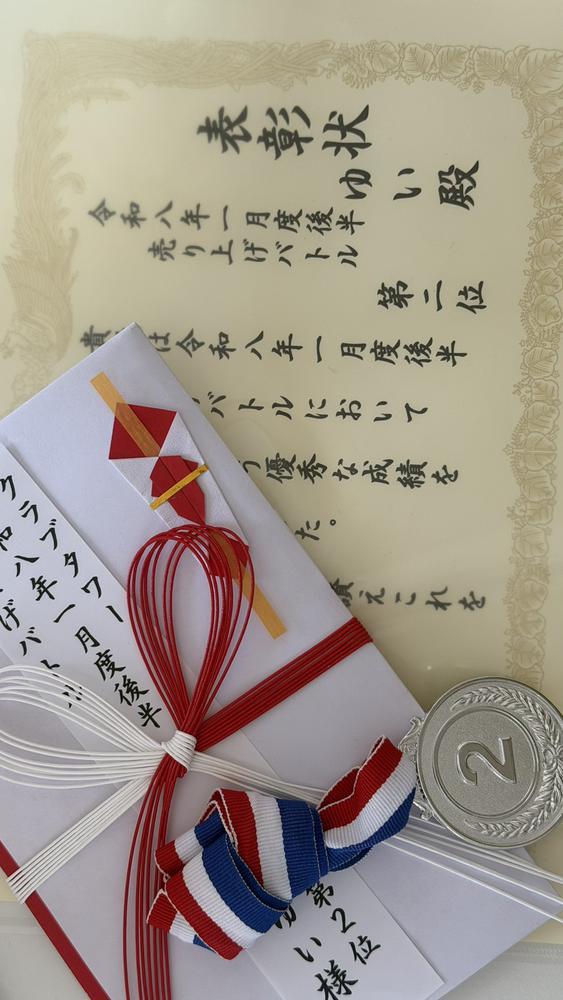 表彰状
ゆい殿
令和八年一月度後半
売り上げバトル
第二位
貴 は令和八年一月度後半
バトルにおいて
優秀な成績を
た。
えこれを
クラブタワー
和八年一月度後半
げバトル
第2位
ゆい様
2